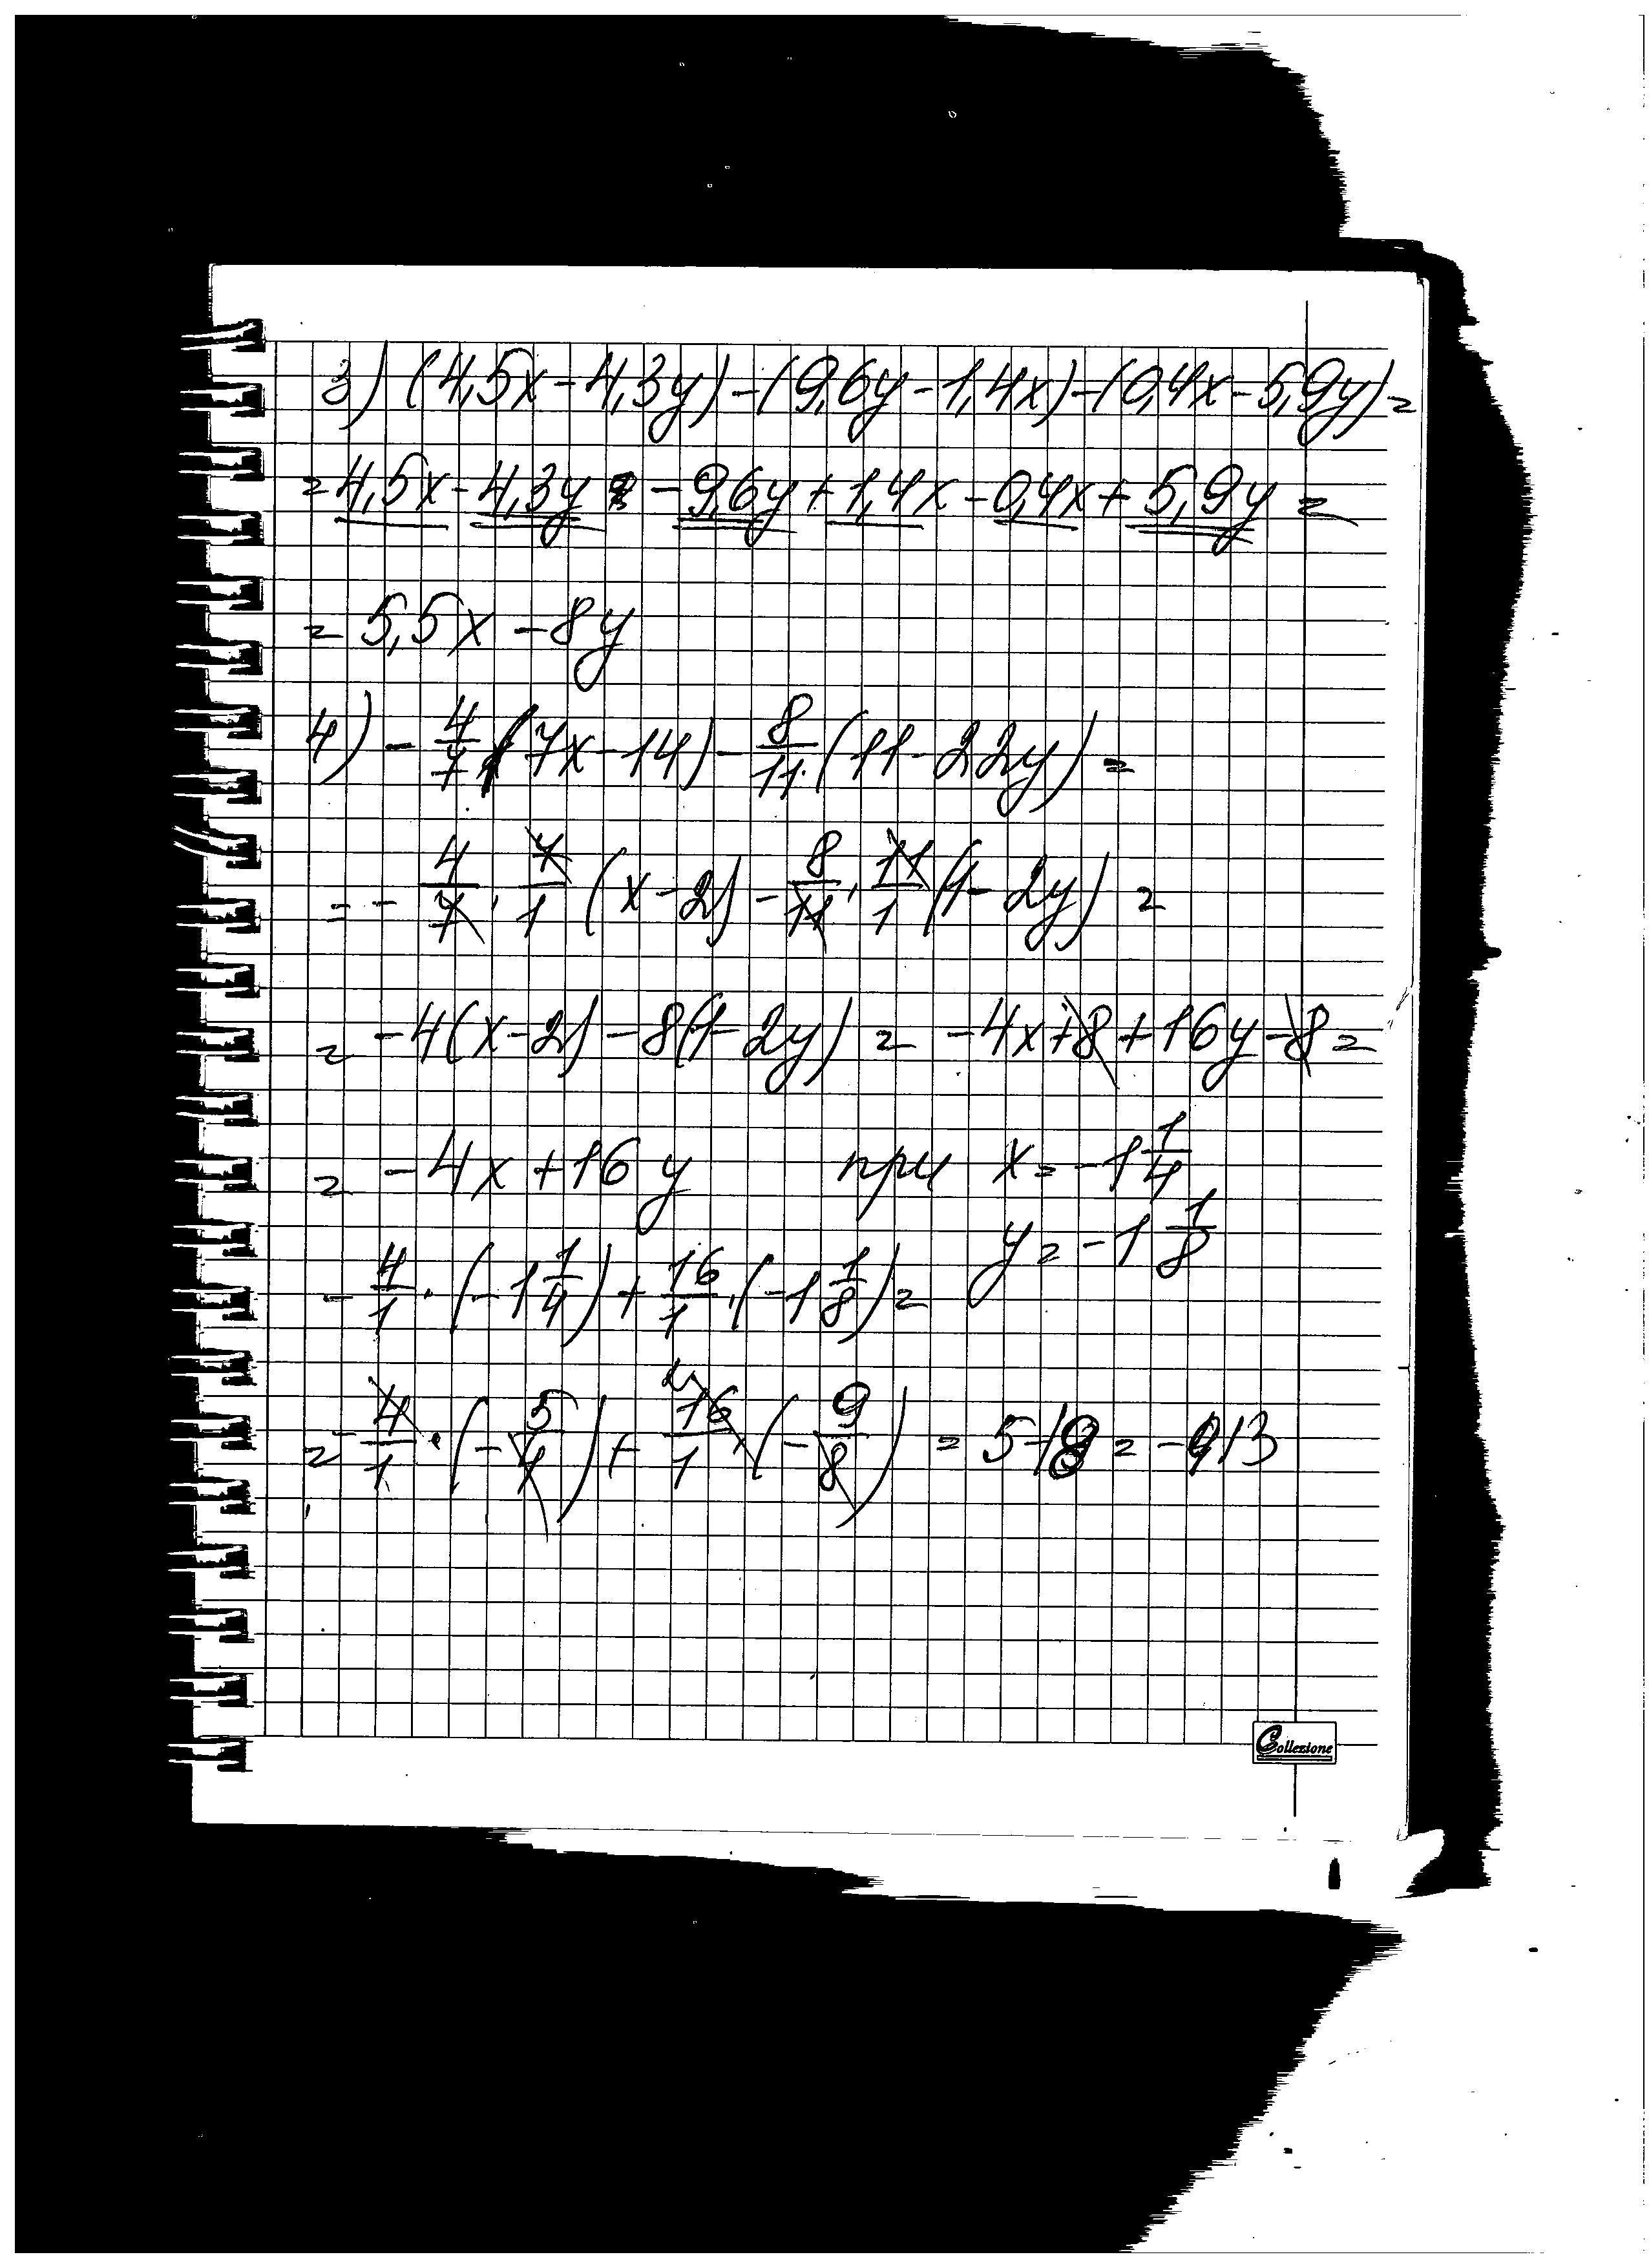 3) (4,5x - 4,3y) - (9,6y - 1,4x) - (0,4x - 5,9y) =
= 4,5x - 4,3y - 9,6y + 1,4x - 0,4x + 5,9y =
= 5,5x - 8y
4) - 4/7 (7x - 14) - 8/11 · (11 - 22y) =
= - 4/7 · 7/1 (x - 2) - 8/11 · 11/1 (1 - 2y) =
= -4(x - 2) - 8(1 - 2y) = -4x + 8 + 16y - 8 =
= -4x + 16y при x = -1 1/4
y = -1 1/8
- 4/1 · (-1 1/4) + 16/1 · (-1 1/8) =
= - 4/1 · (- 5/4) + 16/1 · (- 9/8) = 5 - 18 = -13
Collezione